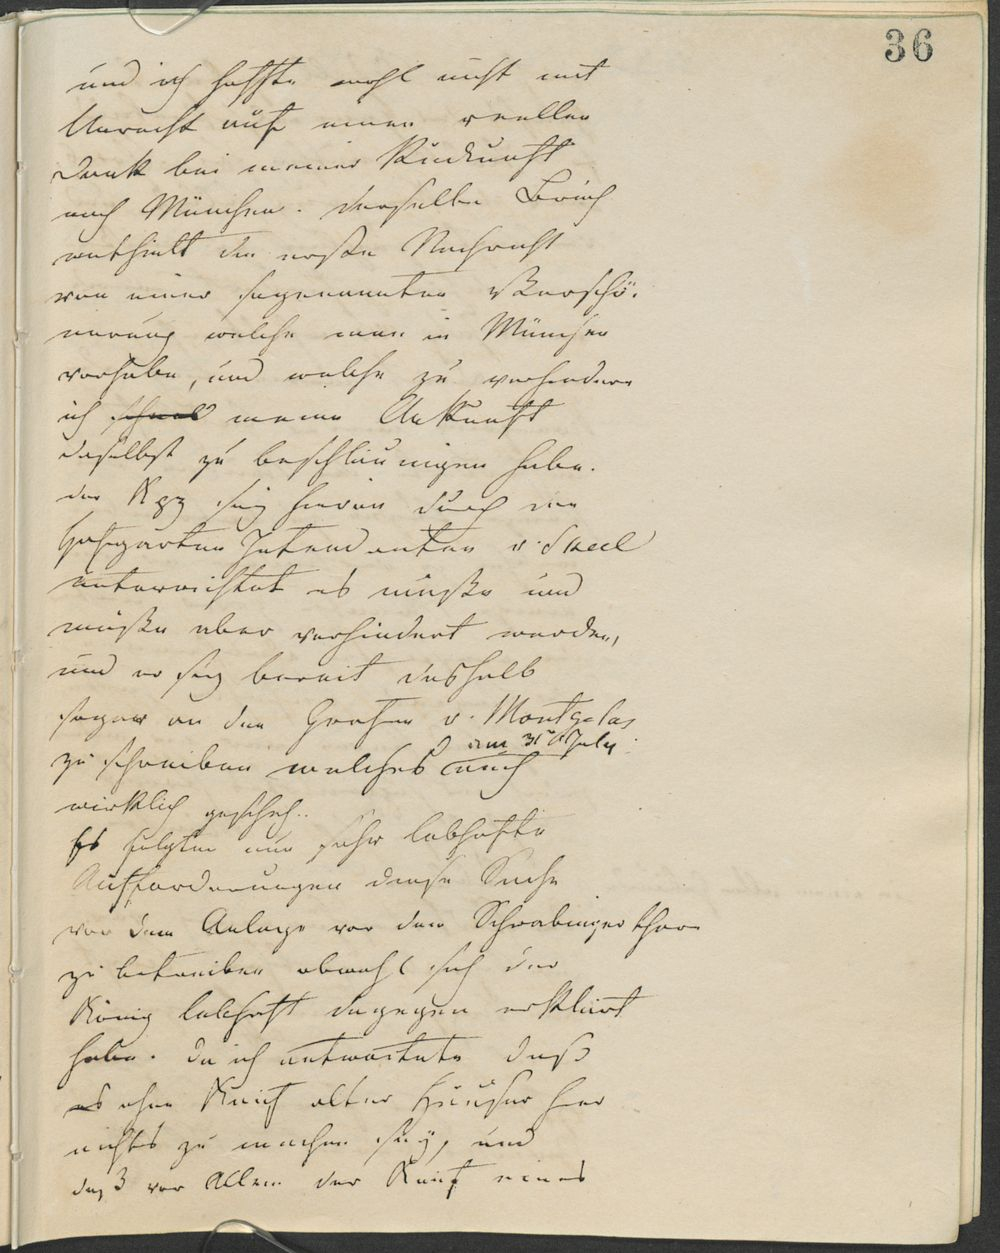 36
und ich hoffte wohl nicht mit
Unrecht auf einen reellen
Dank bei meiner Rückkunft
nach München. Derselbe Brief
enthielt die erste Nachricht
von einer sogenannten Verschö-
nerung welche man in München
vorhabe, und welche zu verhindern
ich schnell meine Ankunft
daselbst zu beschleunigen habe.
der Kpz sey hievon durch den
Hofgarten Intendanten v. Skell
unterrichtet es müße und
müße aber verhindert werden,
und er sey bereit deshalb
sogar an den Grafen v. Montgelas
am 31t July
zu schreiben welches auch
wirklich geschah..
Es folgten nun sehr lebhafte
Aufforderungen diese Sache
der Anlage vor dem Schwabinger Thore
zu betreiben obwohl sich der
König lebhaft dagegen erklärt
habe. Da ich antwortete daß
es ohne Kauf alter Häuser hier
nichts zu machen sey, und
daß vor Allem der Kauf eines